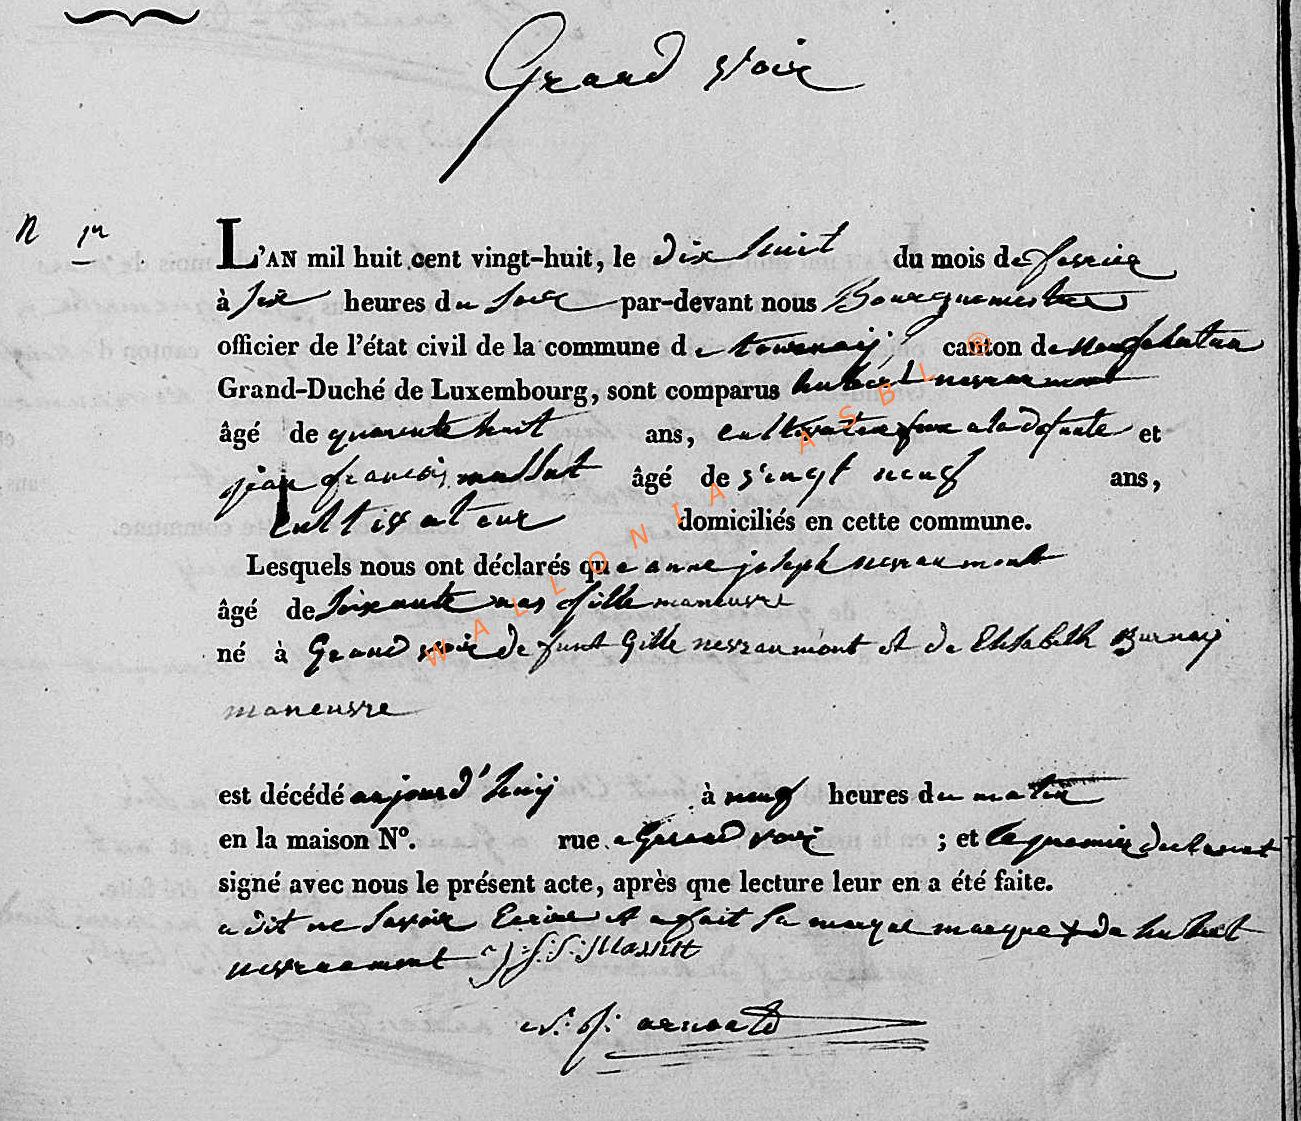 Grand voir
N 1er
L'AN mil huit cent vingt-huit, le dix huit du mois de fevrier
à six heures du soir par-devant nous Bourguemestre
officier de l'état civil de la commune de tournay canton de neufchateau
Grand-Duché de Luxembourg, sont comparus hubert nevraumont
âgé de quarante huit ans, cultivateur frere a la defunte et
jean françois massut âgé de vingt neuf ans,
cultivateur domiciliés en cette commune.
Lesquels nous ont déclarés que anne joseph nevraumont
âgé de soixante ans fille maneuvre
né à Grand voir de funt Gille nevraumont et de Elisabeth Burnay
maneuvre
est décédé aujourd'huy à neuf heures du matin
en la maison N°. rue a Grand voir ; et le premier declarant
signé avec nous le présent acte, après que lecture leur en a été faite.
a dit ne savoir Ecrire et a fait sa marque marque x de hubert
nevraumont J: f: Massut
arnould
WALLONIA ASBL ®